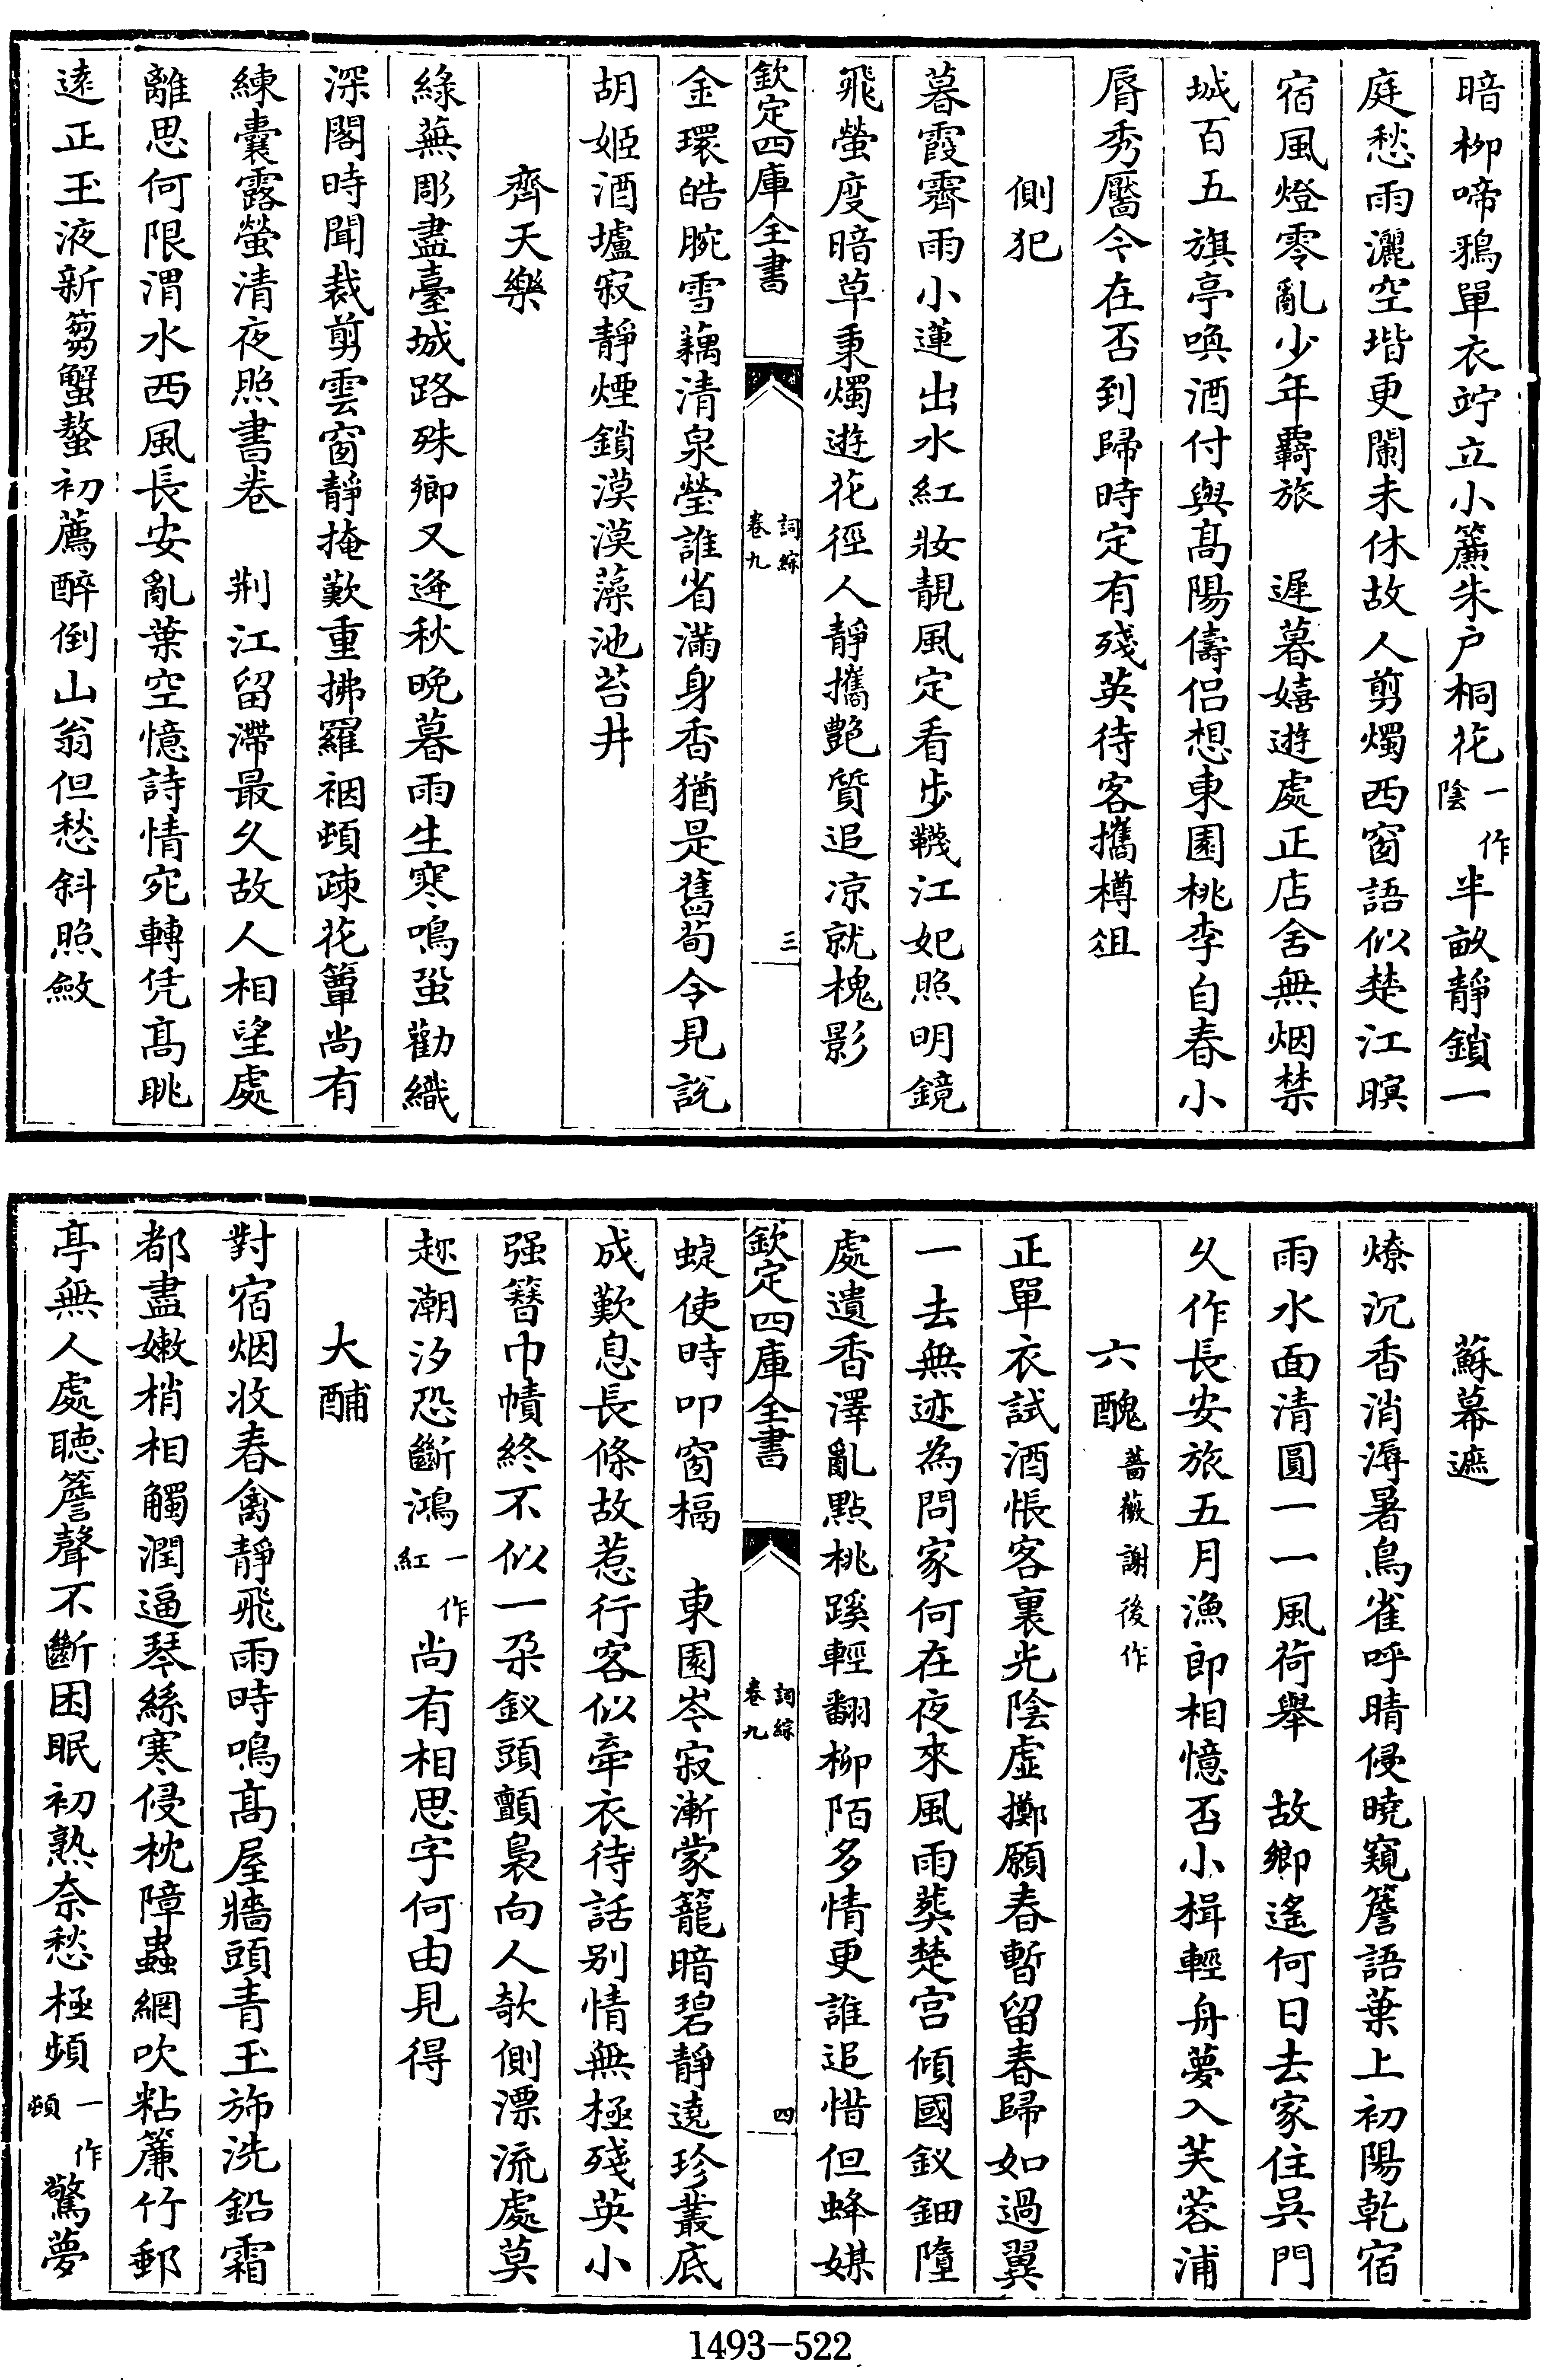 暗柳啼鴉單衣竚立小簾朱户桐花一作陰半畝靜鎖一
庭愁雨灑空堦更闌未休故人剪燭西窗語似楚江暝
宿風燈零亂少年羇旅　遲暮嬉遊處正店舍無烟禁
城百五旗亭喚酒付與髙陽儔侣想東園桃李自春小
脣秀靨今在否到歸時定有殘英待客攜樽俎
側犯
暮霞霽雨小蓮出水紅妝靚風定看步韈江妃照明鏡
飛螢度暗草秉燭遊花徑人靜攜艷質追凉就槐影
欽定四庫全書
詞綜
卷九
三
金環皓腕雪藕清泉瑩誰省滿身香猶是舊荀令見說
胡姬酒壚寂靜煙鎖漠漠藻池苔井
齊天樂
綠蕪彫盡臺城路殊鄉又逢秋晚暮雨生寒鳴蛩勸織
深閣時聞裁剪雲窗靜掩歎重拂羅裀頓疎花簟尚有
練囊露螢清夜照書卷　荆江留滯最久故人相望處
離思何限渭水西風長安亂葉空憶詩情宛轉凭髙眺
遠正玉液新篘蟹螯初薦醉倒山翁但愁斜照斂
蘇幕遮
燎沉香消溽暑鳥雀呼晴侵曉窺簷語葉上初陽乾宿
雨水面清圓一一風荷舉　故鄉遙何日去家住吳門
乆作長安旅五月漁郎相憶否小楫輕舟夢入芙蓉浦
六醜薔薇謝後作
正單衣試酒悵客裏光陰虛擲願春暫留春歸如過翼
一去無迹為問家何在夜來風雨葬楚宫傾國釵鈿墮
處遺香澤亂點桃蹊輕翻柳陌多情更誰追惜但蜂媒
欽定四庫全書
詞綜
卷九
四
蜨使時叩窗槅　東園岑寂漸蒙籠暗碧靜遶珍叢底
成歎息長條故惹行客似牽衣待話别情無極殘英小
强簪巾幘終不似一朶釵頭顫裊向人欹側漂流處莫
趂潮汐恐斷鴻一作紅尚有相思字何由見得
大酺
對宿烟收春禽靜飛雨時鳴髙屋牆頭青玉斾洗鉛霜
都盡嫩梢相觸潤逼琴絲寒侵枕障蟲網吹粘簾竹郵
亭無人處聴簷聲不斷困眠初熟奈愁極頻一作頓驚夢
1493-522